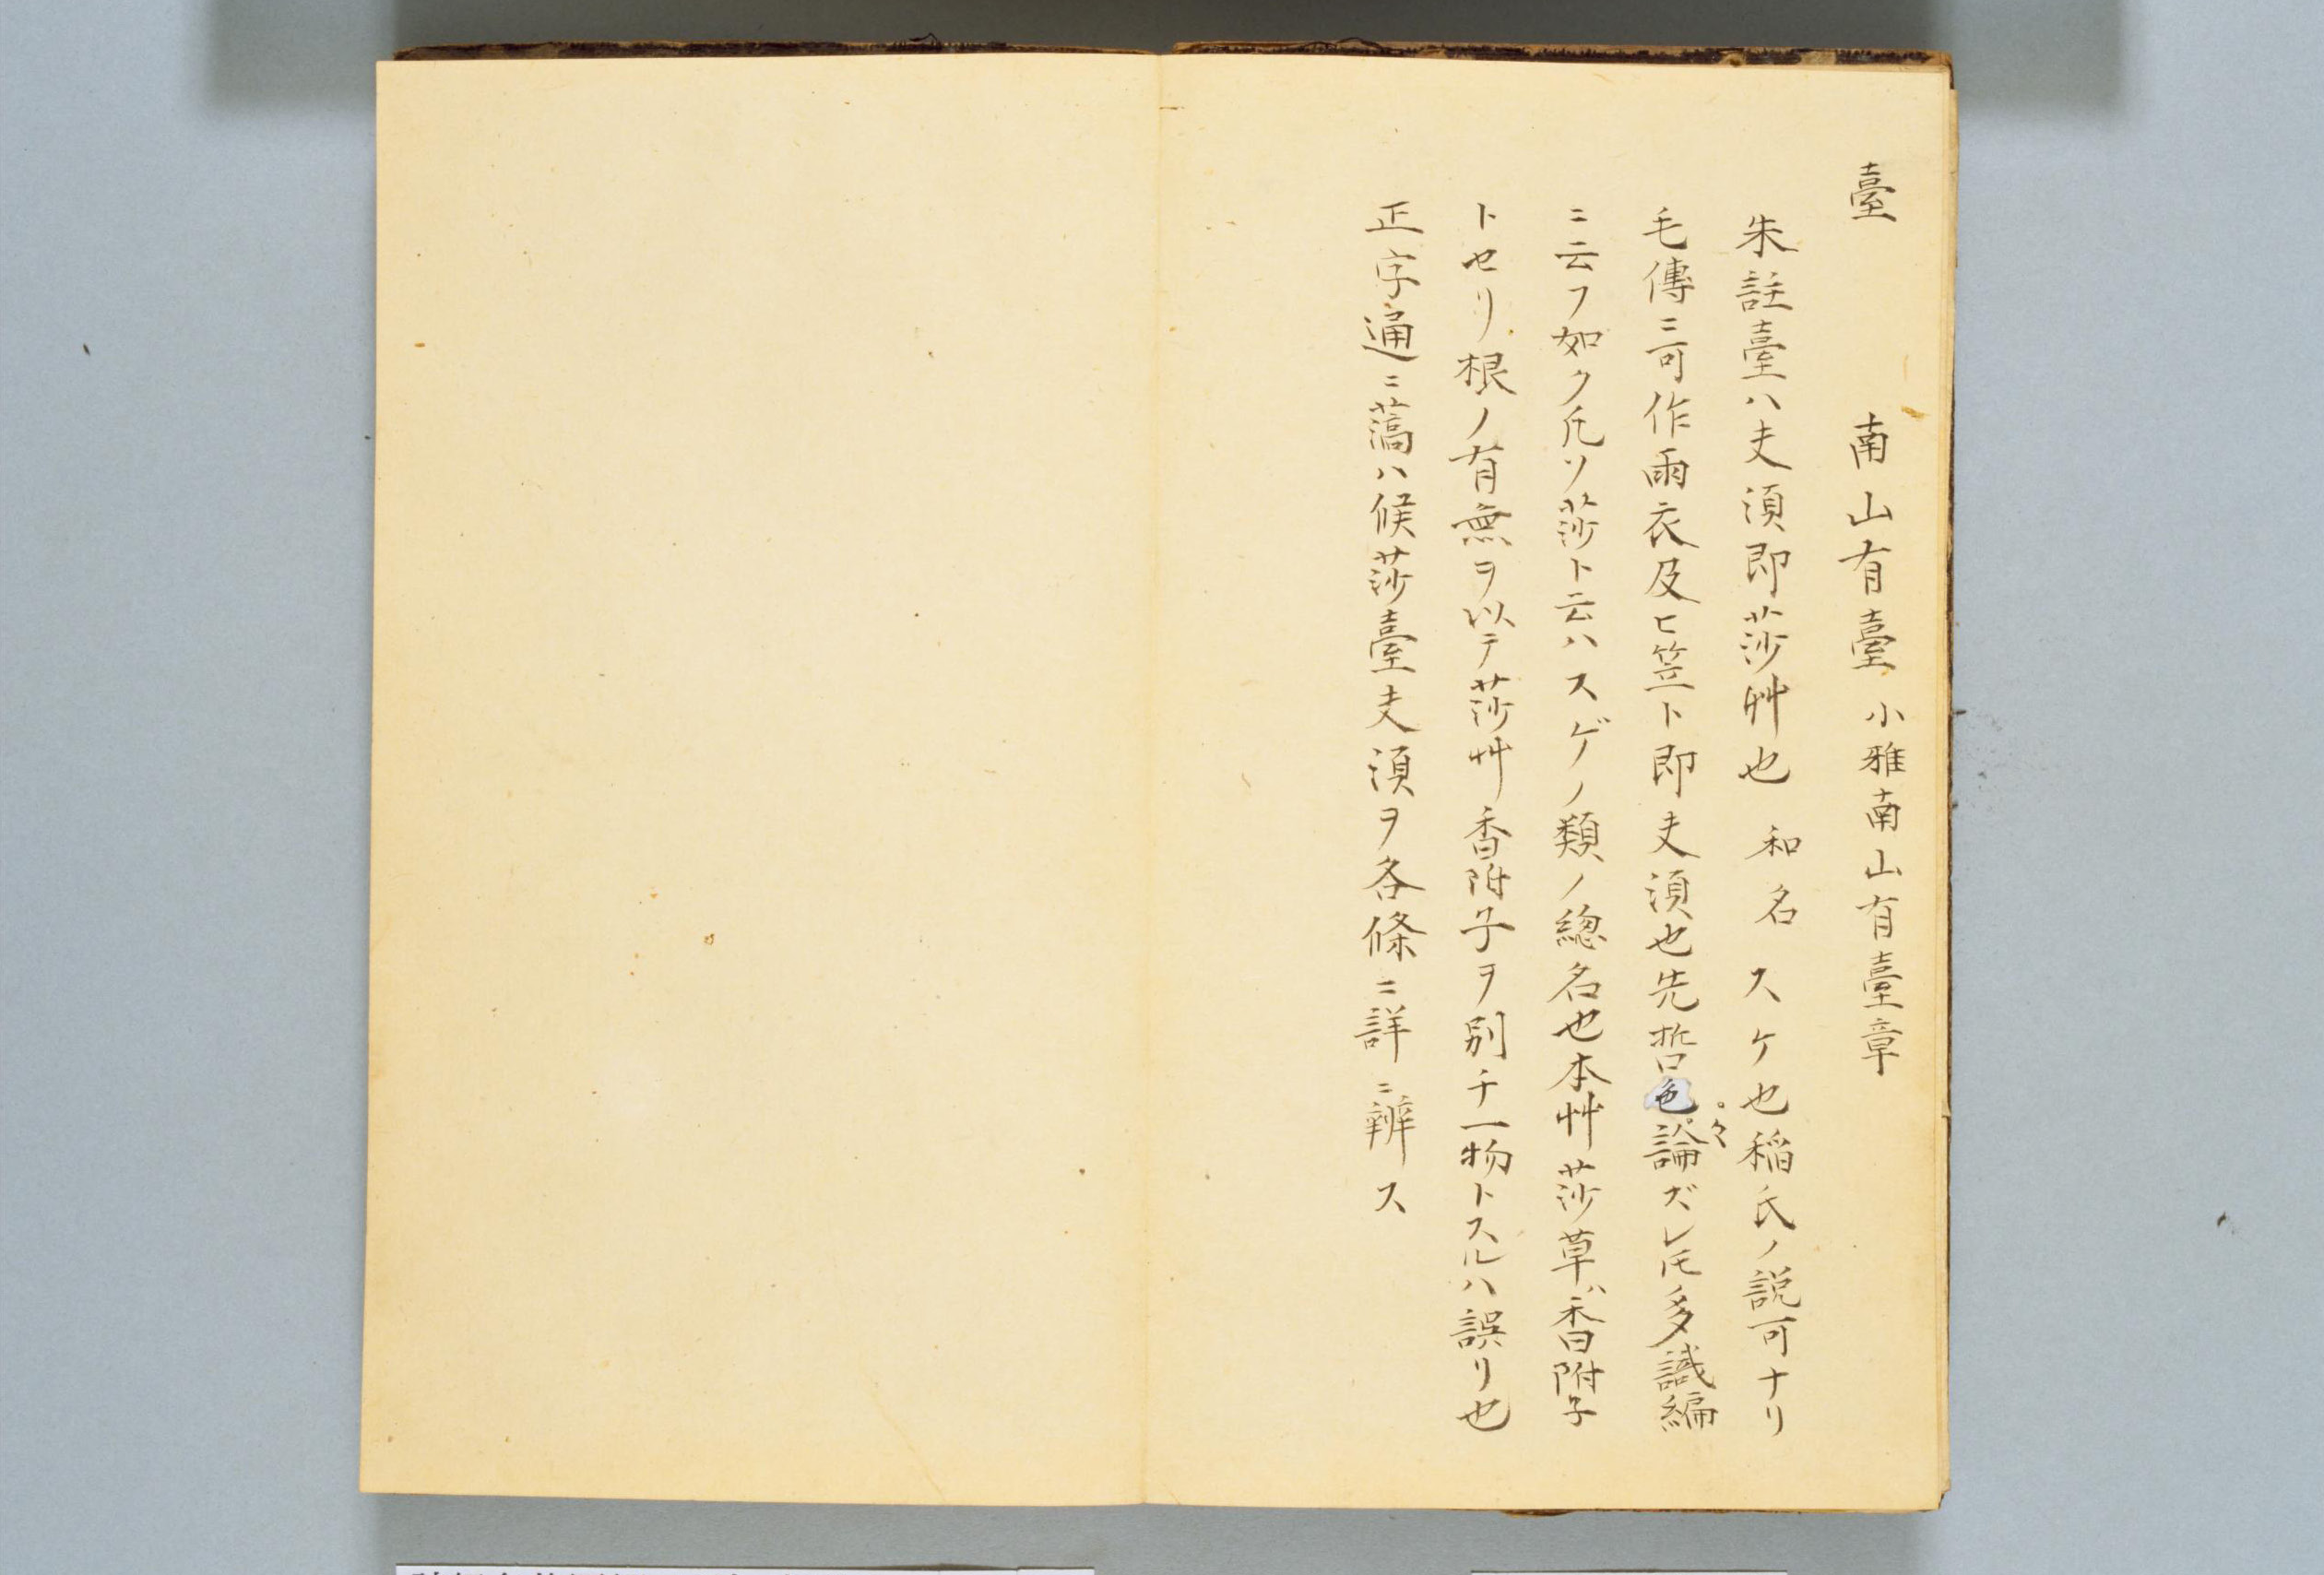 臺　南山有臺 小雅南山有臺章
朱註臺ハ夫須即莎艸也 和名スケ也稲氏ノ説可ナリ
毛傳ニ可作雨衣及ヒ笠ト即夫須也先哲色々論ズレ𪜈多識編
ニ云フ如ク凡ソ莎ト云ハスゲノ類ノ總名也本艸莎草ハ香附子
トセリ根ノ有無ヲ以テ莎艸香附子ヲ別チ一物トスルハ誤リ也
正字通ニ薃ハ候莎臺夫須ヲ各條ニ詳ニ辨ス